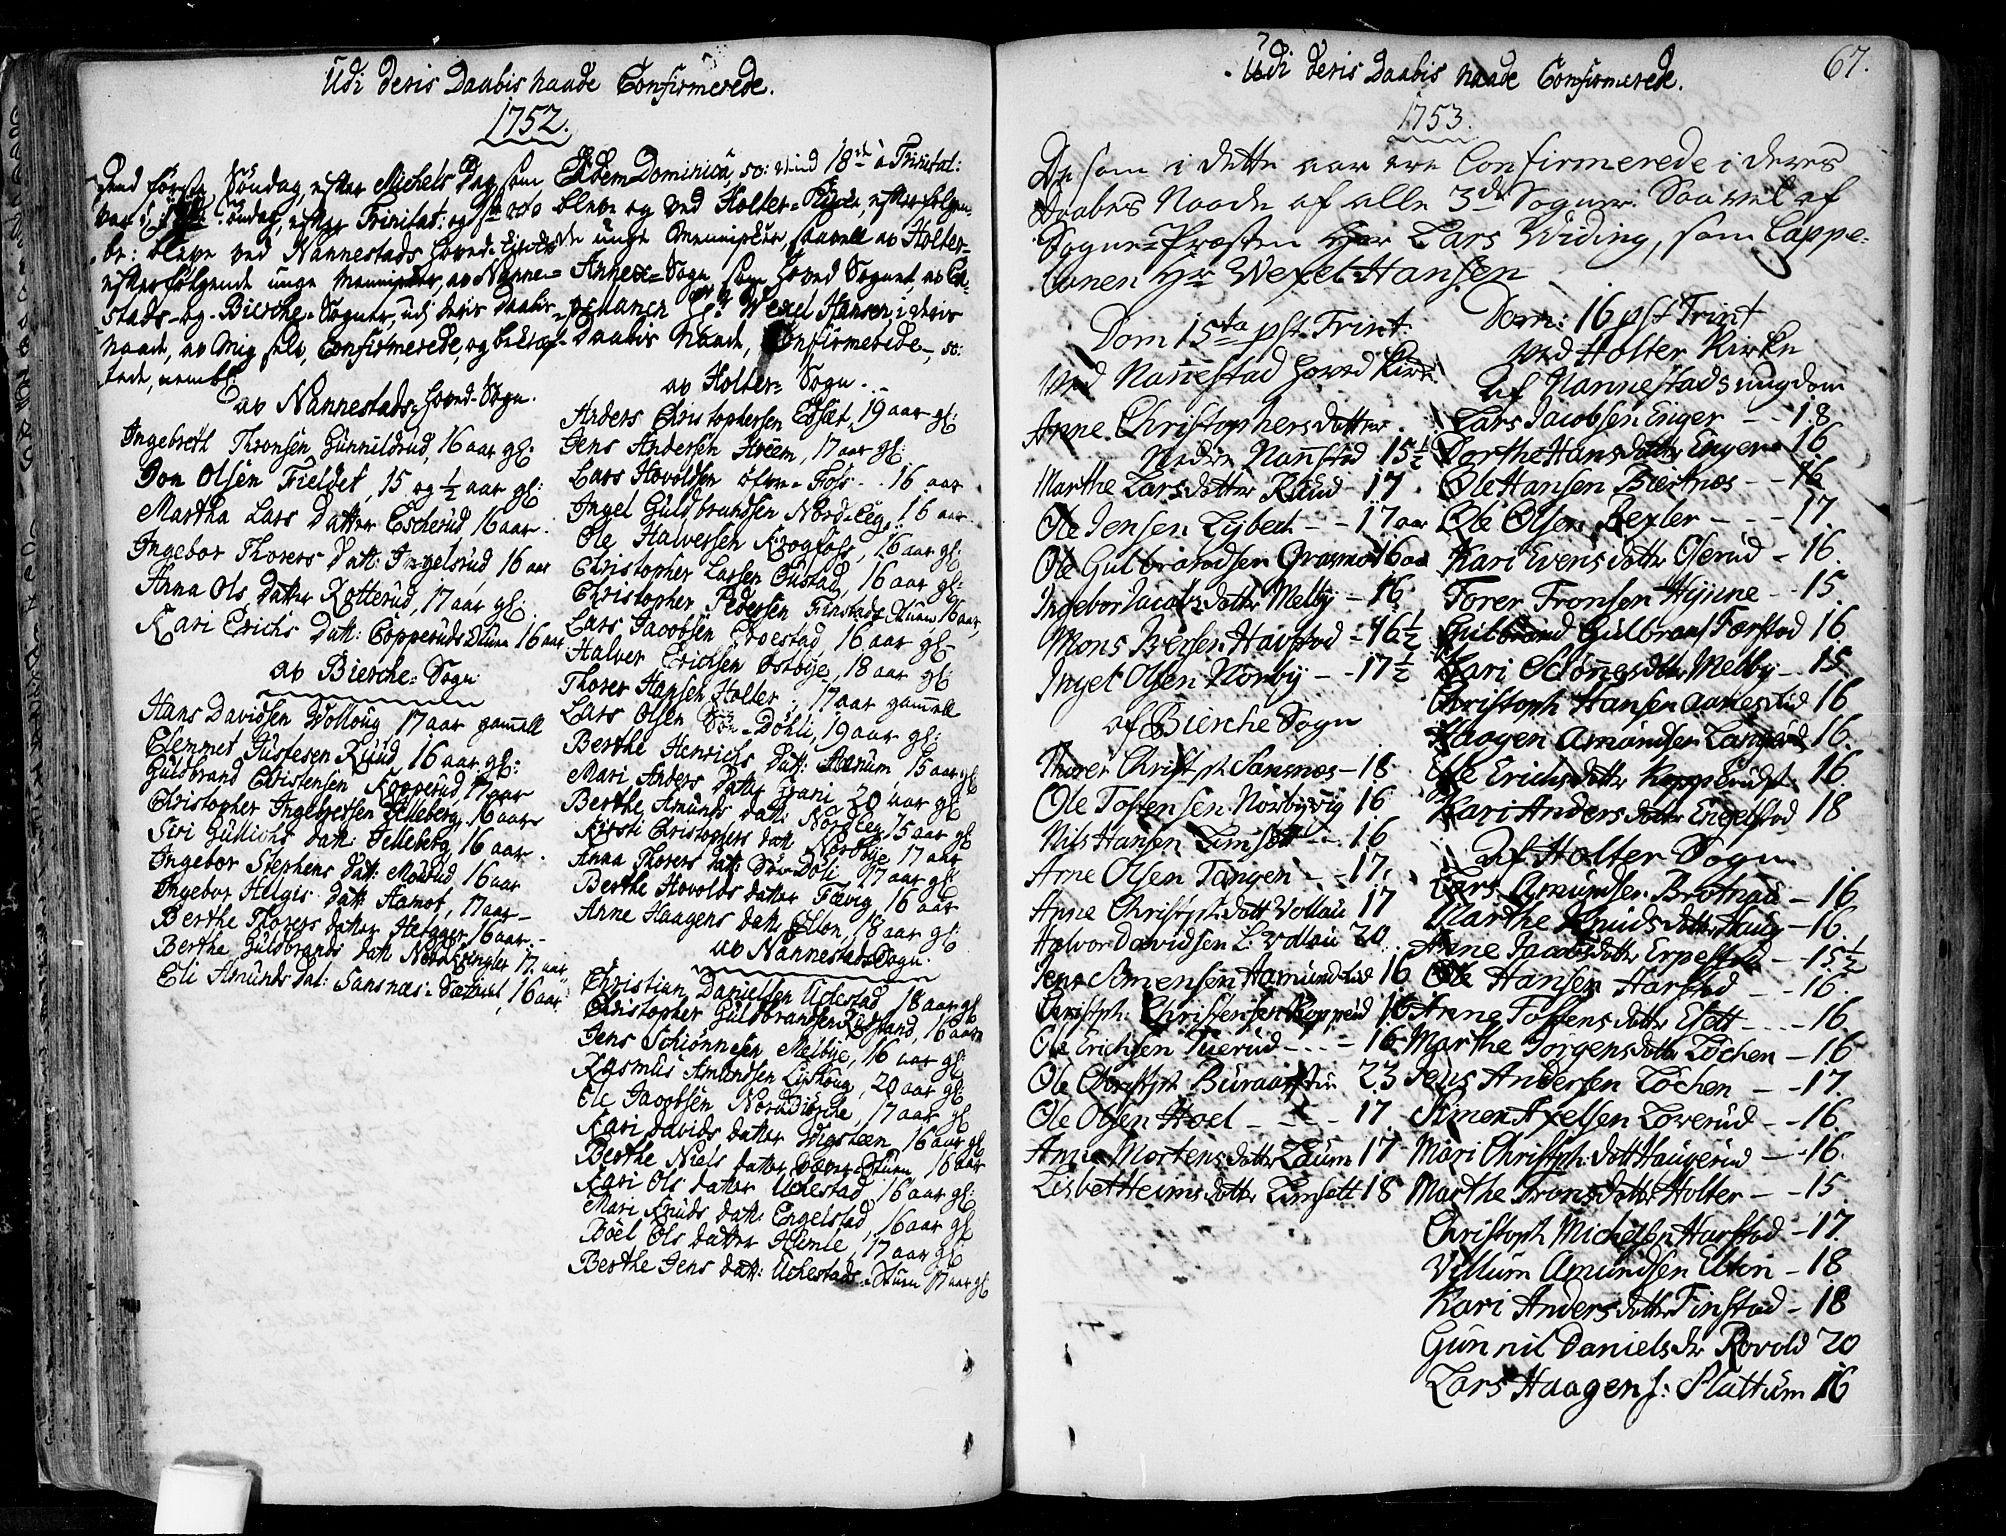 Udi deris Daabis Naade Confirmerede.
1752.
Dend første Søndag, efter Michels Dag, som
var Søndag, efter Trinitat: og
br: bleve ved Nannestads Hoved-Kirche
efterfølgende unge Mennisker, av Nanne-
stads- og Bierche-Sogner, udi deris Daabis
Naade, av Mig self, Confirmerede, og bekræf-
tede, nembl.
av Nannestads Hoved-Sogn.
Ingebret Thronsen Gunnildrud, 16 aar gl:
Jon Olsen Fieldet, 15 og ½ aar gl:
Martha Lars Datter Escherud 16 aar.
Ingebor Thorers Datt: Ingelsrud, 16 aar
Anna Ols Datter Rotterud, 17 aar gl:
Kari Erichs Datt: Copperuds Stuen 16 aar
av Bierche-Sogn
Hans Davidsen Wolloug 17 aar gamell
Clemmet Justesen Ruud, 16 aar gl:
Guldbrand Christensen Kopperud 17 aar
Christopher Ingebretsen Telleberg, 16 aar
Siri Gullichs datt: Telleberg, 16 aar.
Ingebor Stephens Datt: Mourud 16 aar
Ingebor Helgis datt: Hamof, 17 aar
Berthe Thorers datter Hegger, 16 aar
Berthe Guldbrands datt: Ringler 17 aar
Eli Amunds Dat: Sansnæs-Sætteret, 16 aar
Eodem Dominica, so: vind 18de à Trinitat:
bleve og ved Holter-Kirche, efterfølgen-
de unge Mennisker, saavell av Holter-
Annex-Sogn som Hoved Sognet av Ca-
pellanen Hr: Wexel Hansen, i deris
Daabis Naade, Confirmerede, so:
av Holter-Sogn.
Anders Christophersen Edsæt, 19 aar gl:
Jens Andersen Hvem, 17 aar gl:
Lars Hovoldsen øfre-Fos 16 aar
Ingel Guldbrandsen Nord-Eeg, 16 aar
Ole Halversen Krogfoss, 16 aar gl:
Christopher Larsen Oustad, 16 aar gl:
Christopher Pedersen Finstads-Stuen 16 aar,
Lars Jacobsen Eroestad, 16 aar gl:
Halver Erichsen Østbye, 18 aar gl:
Thorer Hansen Holter, 17 aar gamell
Lars Olsen Sør-Döhli, 19 aar gl:
Berthe Henrichs Datt: Aarum 15 aar gl
Mari Anders Datter Hrani, 20 aar gl
Berthe Amunds datt: Nord Eeg 15 aar gl
Kirsti Christophers datt Nordbye 17 aar
Anna Thorers datt: Sør-Döli 17 aar gl
Berthe Hovolds datter Fævig 16 aar
Anne Haagens datt: Elton, 18 aar gl:
av Nannestads Sogn.
Christian Danielsen Uchestad 18 aar gl
Christopher Guldbrandsen Røstand, 16 aar
Jens Schionnesen Melbye, 16 aar gl:
Rasmus Amundsen Lyshoug, 20 aar gl
Ole Jacobsen Nordbierche, 17 aar gl
Kari Davids datter Wigsteen 16 aar gl
Berthe Niels datter Stuen 16 aar
Kari Ols datter Uchestad, 16 aar gl:
Mari Knuds datt: Engelstad, 16 aar gl
Böel Ols datter Himle, 17 aar gl
Berthe Jens datt: Uchestads-Stuen 17 aar gl
67.
Udi deris Daabis Naade Confirmerede.
1753.
De som i dette aar ere Confirmerede i deres
Daabes Naade af alle 3de Sogner Saavel af
Sogne-Præsten Her Lars Widing, som Cappe-
lanen Hr Wexel Hansen
Dom 15ta pst. Trint.
Ved Nannestad Hoved Kirke
Anne Christophers datter
Nedre Nannstad 15½
Marthe Larsdatter Ruud 17
Ole Jensen Lybech - 17 aar
Ole Gulbrandsen Grasmo 16 aar
Ingebor Jacobsdatter Melby - 16
Mons Iversen Havstad - 16½
Ingel Olsen Norby - 17½
af Bierche Sogn
Thorer Christoph Sansnæs - 18
Ole Tostensen Norbyvig 16
Nils Hansen Limsett - 16
Arne Olsen Tangen - 17
Anne Christph: datt Vollau 17
Halvor Davidsen L: Vollau 20
Jens Simensen Aamundstad 16
Christph: Christensen Koppeud 16
Ole Erichsen Tuerud - 16
Ole Christph Buraasstu 23
Ole Olsen Hoel - 17
Anne Mortens datter Laum 17
Lisbet Heimsdatter Limsett 18
Dom: 16 pst Trint
Ved Holter Kirke
af Nannestads ungdom
Lars Jacobsen Enger - 18
Dorthe Hans datter Engern 16
Ole Hansen Biertnæs - 16
Ole Olsen Bexler - 17
Kari Evens datter Olsrud - 16
Torer Tronsen Hynne - 15
Gulbrand Gulbrans Færstad 16
Kari Schönnes datt Melby - 15
Christoph Hansen Aamestad 16
Haagen Amundsen Langrud 16
Else Erichsdatter Kopperudst. 16
Kari Anders datter Engelstad 18
af Holter Sogn
Lars Amundsen Brotnau - 16
Marthe Knuds datter Haug - 16
Anne Jacobsdatter Erpestad - 15½
Ole Hansen Harstad - 16
Anne Tostens datter Esett - 16
Marthe Jorgensdatter Løchen - 16
Jens Andersen Löchen - 17
Simen Axelsen Loverud - 16
Mari Christph: datt Haugerud - 16
Marthe Tronsdatter Holter - 15
Christoph Michelsen Harstad - 17
Villum Amundsen Eltin - 18
Kari Anders datter Finstad - 18
Gunnil Daniels dr Rovold 20
Lars Haagens: Slattum 16